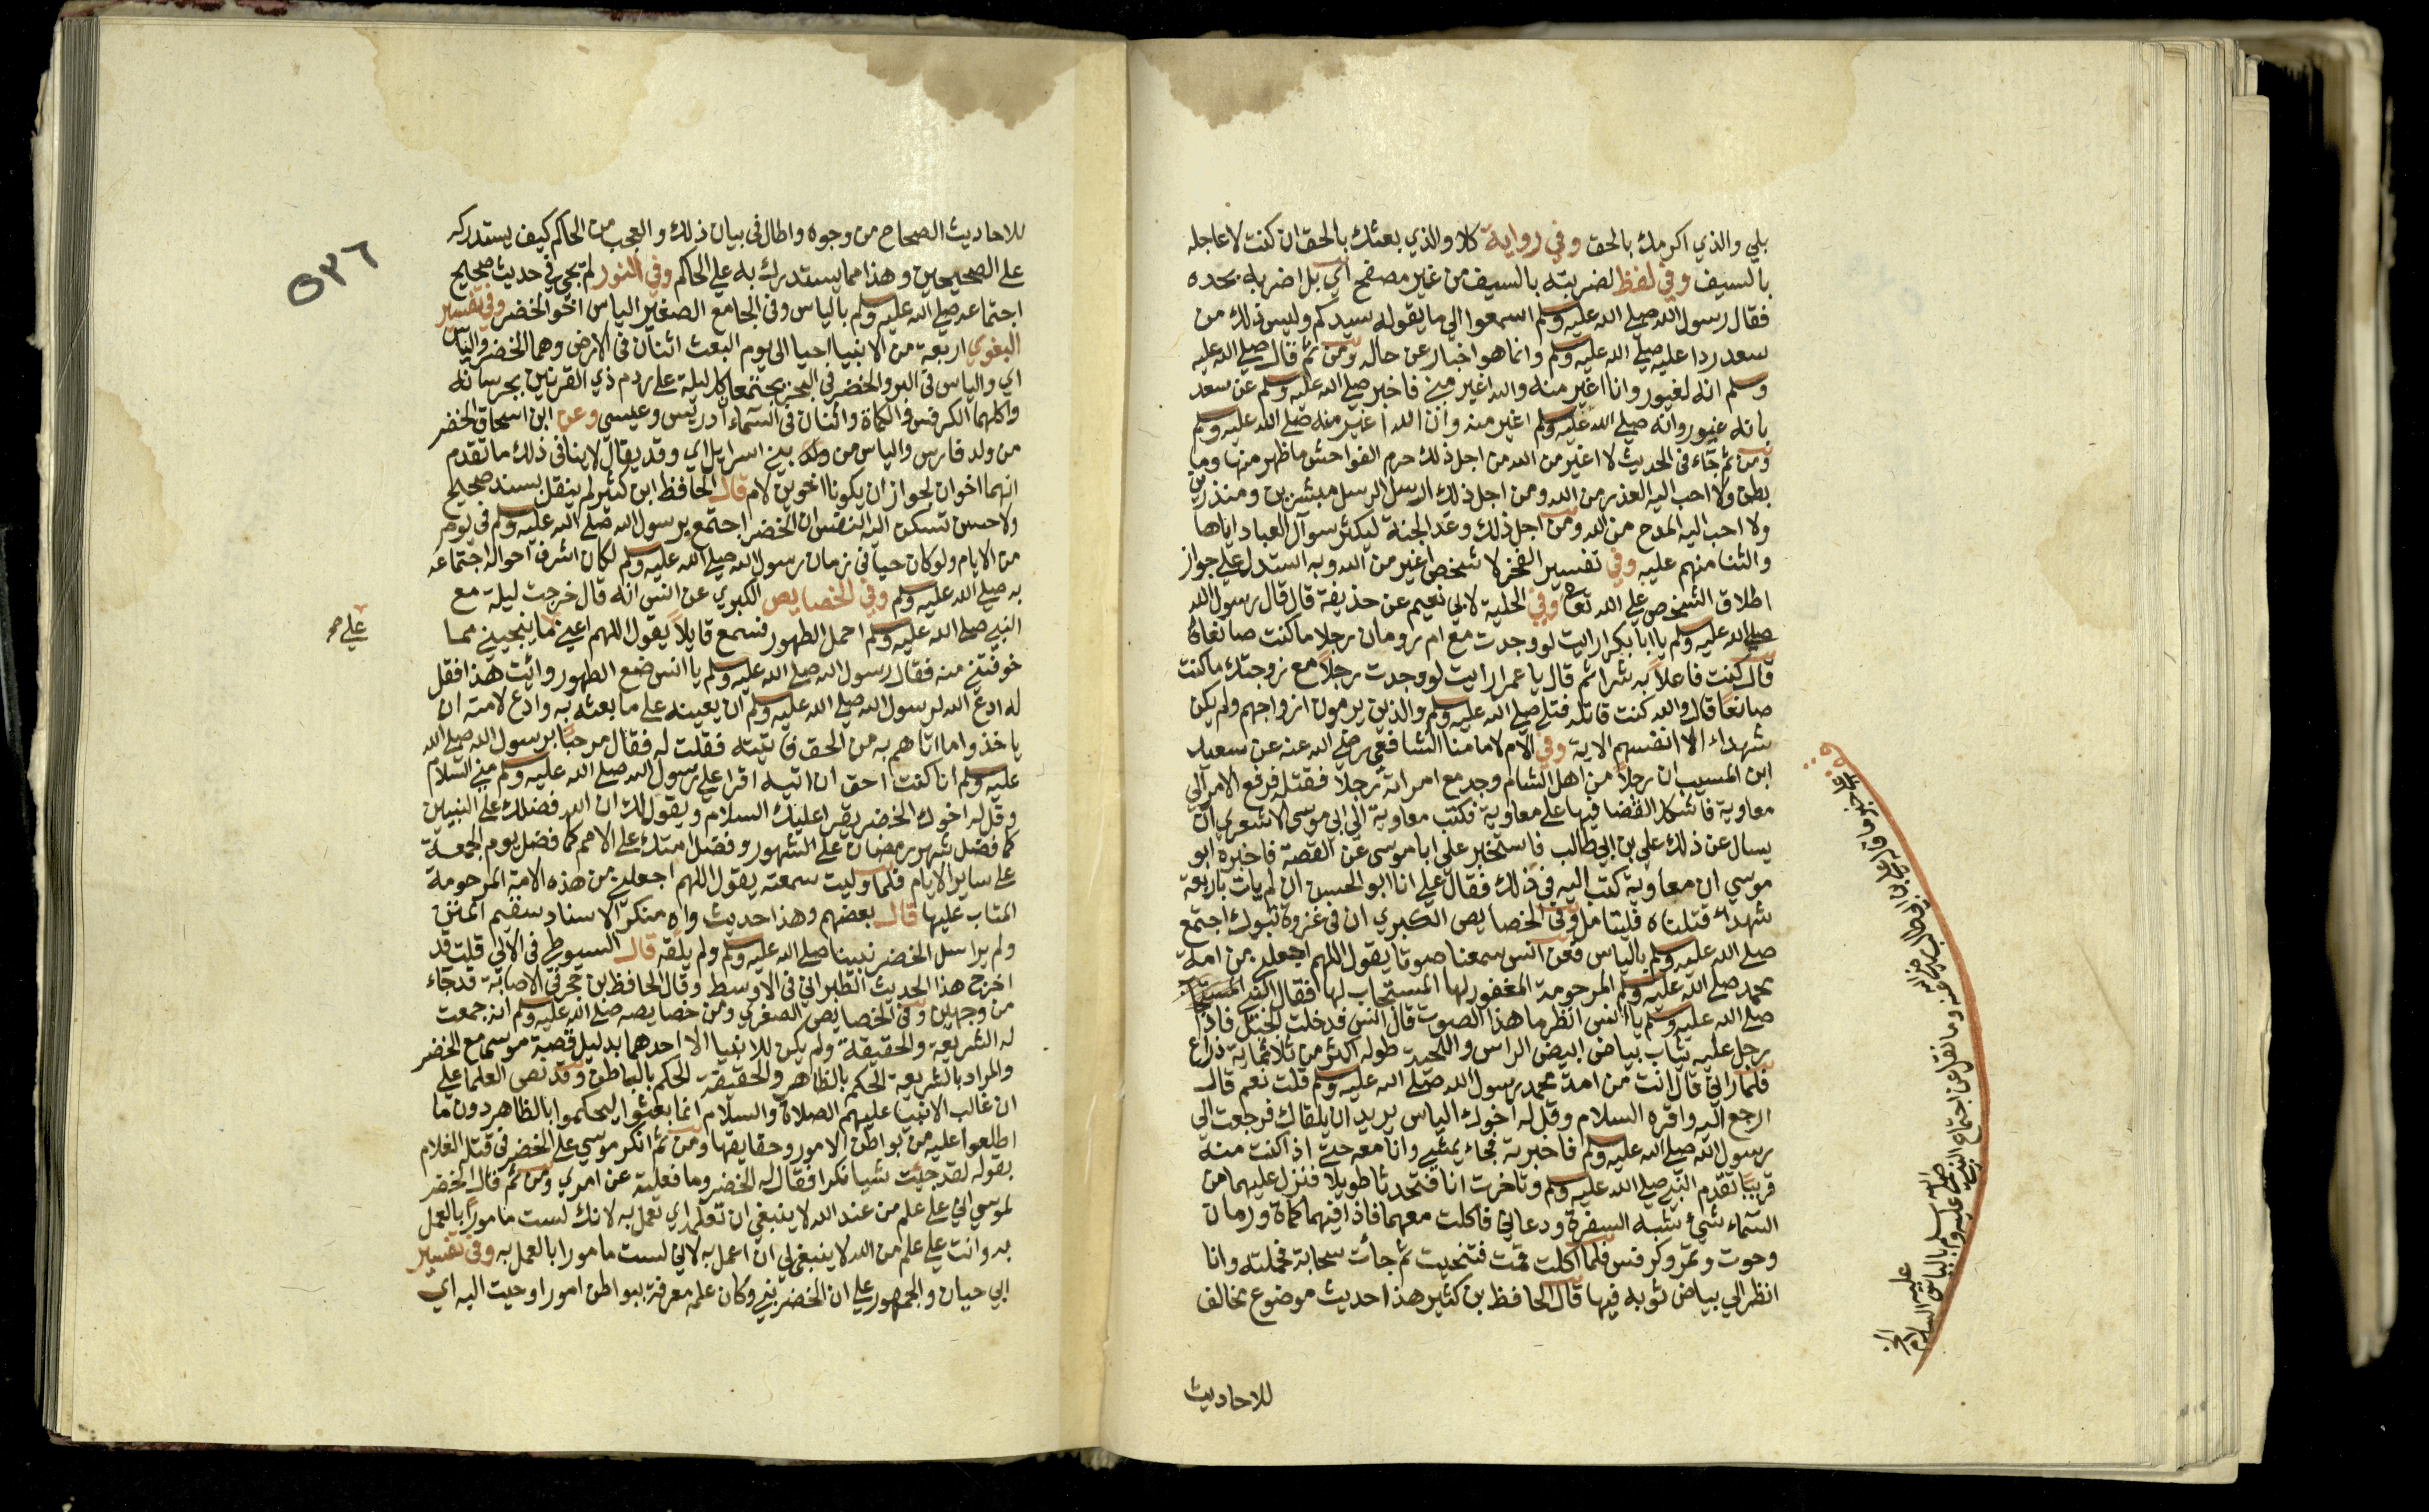 بلي والذي اكرمك بالحق وفي رواية كلا والذي بعثك بالحق ان كنت لاعاجله
بالسيف وفي لفظ لضربته بالسيف من غير مصفح اي بل اضربه بحده
فقال رسول الله صلي الله عليه وسلم اسمعوا الي ما يقوله سيدكم وليس ذلك من
سعد ردا عليه صلي الله عليه وسلم وانما هو اخبار عن حاله ومن ثم قال صلي الله عليه
وسلم انه لغيور وانا اغير منه والله اغير مني فاخبر صلي الله عليه وسلم عن سعد
بانه غيور وانه صلي الله عليه وسلم اغير منه وان الله اغير منه صلي الله عليه وسلم
ومن ثم جاء في الحديث لا اغير من الله من اجل ذلك حرم الفواحش ما ظهر منها وما
بطن ولا احب اليه العذر من الله ومن اجل ذلك ارسل الرسل مبشرين ومنذرين
ولا احب اليه المدح من الله ومن اجل ذلك وعد الجنة ليكثر سوآل العباد اياها
والثنا منهم عليه وفي تفسير الفخر لا شخص اغير من الله وبه استدل علي جواز
اطلاق الشخص علي الله تعا وفي الحلية لابي نعيم عن حذيفة قال قال رسول الله
صلي الله عليه وسلم يا ابا بكر ارايت لو وجدت مع ام رومان رجلا ما كنت صانعا
قال كنت فاعلا به شرا ثم قال يا عمر ارايت لو وجدت رجلا مع زوجتك ما كنت
صانعا قال والله كنت قاتله فتلي صلي الله عليه وسلم والذين يرمون ازواجهم ولم يكن
شهداء الا انفسهم الاية وفي الام لامامنا الشافعي رضي الله عنه عن سعيد
ابن المسيب ان رجلا من اهل الشام وجد مع امراته رجلا فقتله فرفع الامر الي
معاوية فاشكل القضا فيها علي معاوية فكتب معاوية الي ابي موسي الاشعري ان
يسال عن ذلك علي بن ابي طالب فاستخبر علي ابا موسي عن القصة فاخبره ابو
موسي ان معاوية كتب اليه في ذلك فقال علي انا ابو الحسن ان لم يات باربعة
شهداء قتلناه فليتامل وفي الخصايص الكبري ان في غزوة تبوك اجتمع
صلي الله عليه وسلم بالياس فعن انس سمعنا صوتا يقول اللهم اجعلني من امة
محمد صلي الله عليه وسلم المرحومة المغفور لها المستجاب لها فقال النبي
صلي الله عليه وسلم يا انس انظر ما هذا الصوت قال انس فدخلت الجبل فاذا
رجل عليه ثياب بياض ابيض الراس واللحية طوله اكثر من ثلاثماية ذراع
فلما راني قال انت من امة محمد رسول الله صلي الله عليه وسلم قلت نعم قال
ارجع اليه واقره السلام وقل له اخوك الياس يريد ان يلقاك فرجعت الي
رسول الله صلي الله عليه وسلم فاخبرته فجاء يمشي وانا معه حتي اذا كنت منه
قريبا تقدم النبي صلي الله عليه وسلم وتاخرت انا فتحدثا طويلا فنزل عليهما من
السماء شيء يشبه السفرة ودعاني فاكلت معهما فاذا فيهما كماة ورمان
وحوت وتمر وكرفس فلما اكلت قمت فتنحيت ثم جاءت سحابة فحملته وانا
انظر الي بياض ثوبه فيها قال الحافظ بن كثير هذا حديث موضوع مخالف
للاحاديث
علي بن ابي طالب رضي الله عنه وما نقل عن اجتماع النبي صلي
الله عليه وسلم بالياس
عليه السلام
٥٣٦
للاحاديث الصحاح من وجوه واطال في بيان ذلك والعجب من الحاكم كيف يستدركه
علي الصحيحين وهذا مما يستدرك به علي الحاكم وفي النور لم يجيء في حديث صحيح
اجتماعه صلي الله عليه وسلم بالياس وفي الجامع الصغير الياس اخو الخضر وفي تفسير
البغوي اربعة من الانبيا احيا الي يوم البعث اثنان في الارض وهما الخضر والياس
اي والياس في البر والخضر في البحر يجتمعا كل ليلة علي ردم ذي القرنين يحرسانه
واكلهما الكرفس والكماة واثنان في السماء ادريس وعيسي وعن ابن اسحاق الخضر
من ولد فارس والياس من ولد بني اسرايل اي وقد يقال لا ينافي ذلك ما تقدم
انهما اخوان لجواز ان يكونا اخوين لام قال الحافظ ابن كثير لم ينقل بسند صحيح
ولا حسن تسكن اليه النفس ان الخضر اجتمع برسول الله صلي الله عليه وسلم في يوم
من الايام ولو كان حيا في زمان رسول الله صلي الله عليه وسلم لكان اشرف احواله اجتماعه
به صلي الله عليه وسلم وفي الخصايص الكبري عن انس انه قال خرجت ليلة مع
النبي صلي الله عليه وسلم احمل الطهور فسمع قايلا يقول اللهم اعني ما ينجيني مما
علي
خوفتني منه فقال رسول الله صلي الله عليه وسلم يا انس ضع الطهور وائت هذا فقل
له ادع الله لرسول الله صلي الله عليه وسلم ان يعينه علي ما بعثه به وادع لامته ان
ياخذوا ما اتاهم به من الحق فاتيته فقلت له فقال مرحبا برسول الله صلي الله
عليه وسلم انا كنت احق ان اتيه اقرا علي رسول الله صلي الله عليه وسلم مني السلام
وقل له اخوك الخضر يقرا عليك السلام ويقول لك ان الله فضلك علي النبيين
كما فضل شهر رمضان علي الشهور وفضل امتك علي الامم كما فضل يوم الجمعة
علي ساير الايام فلما وليت سمعته يقول اللهم اجعلني من هذه الامة المرحومة
المتاب عليها قال بعضهم وهذا حديث واه منكر الاسناد سقيم المتن
ولم يراسل الخضر نبينا صلي الله عليه وسلم ولم يلقه قال السيوطي في الالي قلت قد
اخرج هذا الحديث الطبراني في الاوسط وقال الحافظ بن حجر في الاصابة قد جاء
من وجهين وفي الخصايص الصغري ومن خصايصه صلي الله عليه وسلم انه جمعت
له الشريعة والحقيقة ولم يكن للانبيا الا احدهما بدليل قصة موسي مع الخضر
والمراد بالشريعة الحكم بالظاهر والحقيقة الحكم بالباطن وقد نص العلما علي
ان غالب الانبيا عليهم الصلاة والسلام انما بعثوا ليحكموا بالظاهر دون ما
اطلعوا عليه من بواطن الامور وحقايقها ومن ثم انكر موسي علي الخضر في قتله الغلام
بقوله لقد جئت شيا نكرا فقال له الخضر وما فعلته عن امري ومن ثم قال الخضر
لموسي اني علي علم من عند الله لا ينبغي ان تعلمه اي تعمل به لانك لست مامورا بالعمل
به وانت علي علم من الله لا ينبغي لي ان اعمل به لاني لست مامورا بالعمل به وفي تفسير
ابي حيان والجمهور علي ان الخضر نبي وكان علمه معرفة بواطن امور اوحيت اليه اي